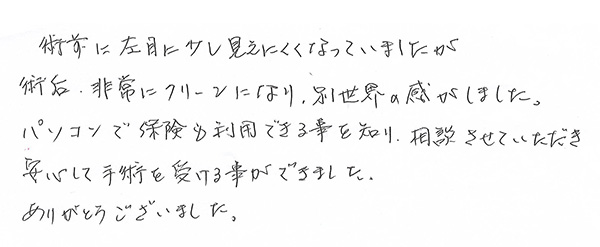 術前に左目に少し見えにくくなっていましたが
術后、非常にクリーンになり、別世界の感がしました。
パソコンで保険も利用できる事を知り、相談させていただき
安心して手術を受ける事ができました。
ありがとうございました。